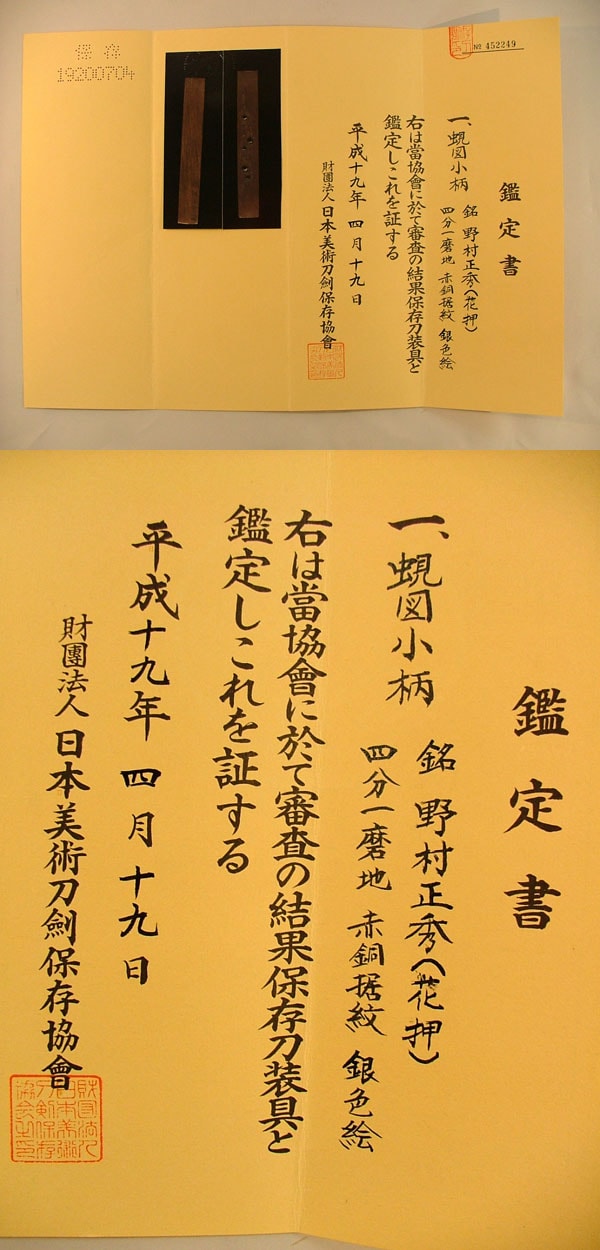 保存
19200704
№ 452249
鑑定書
一、蜆図小柄 銘 野村正秀(花押)
四分一磨地 赤銅据紋 銀色絵
右は當協會に於て審査の結果保存刀装具と
鑑定しこれを証する
平成十九年 四月 十九日
財團法人 日本美術刀劍保存協會
鑑定書
一、蜆図小柄 銘 野村正秀(花押)
四分一磨地 赤銅据紋 銀色絵
右は當協會に於て審査の結果保存刀装具と
鑑定しこれを証する
平成十九年 四月 十九日
財團法人 日本美術刀劍保存協會